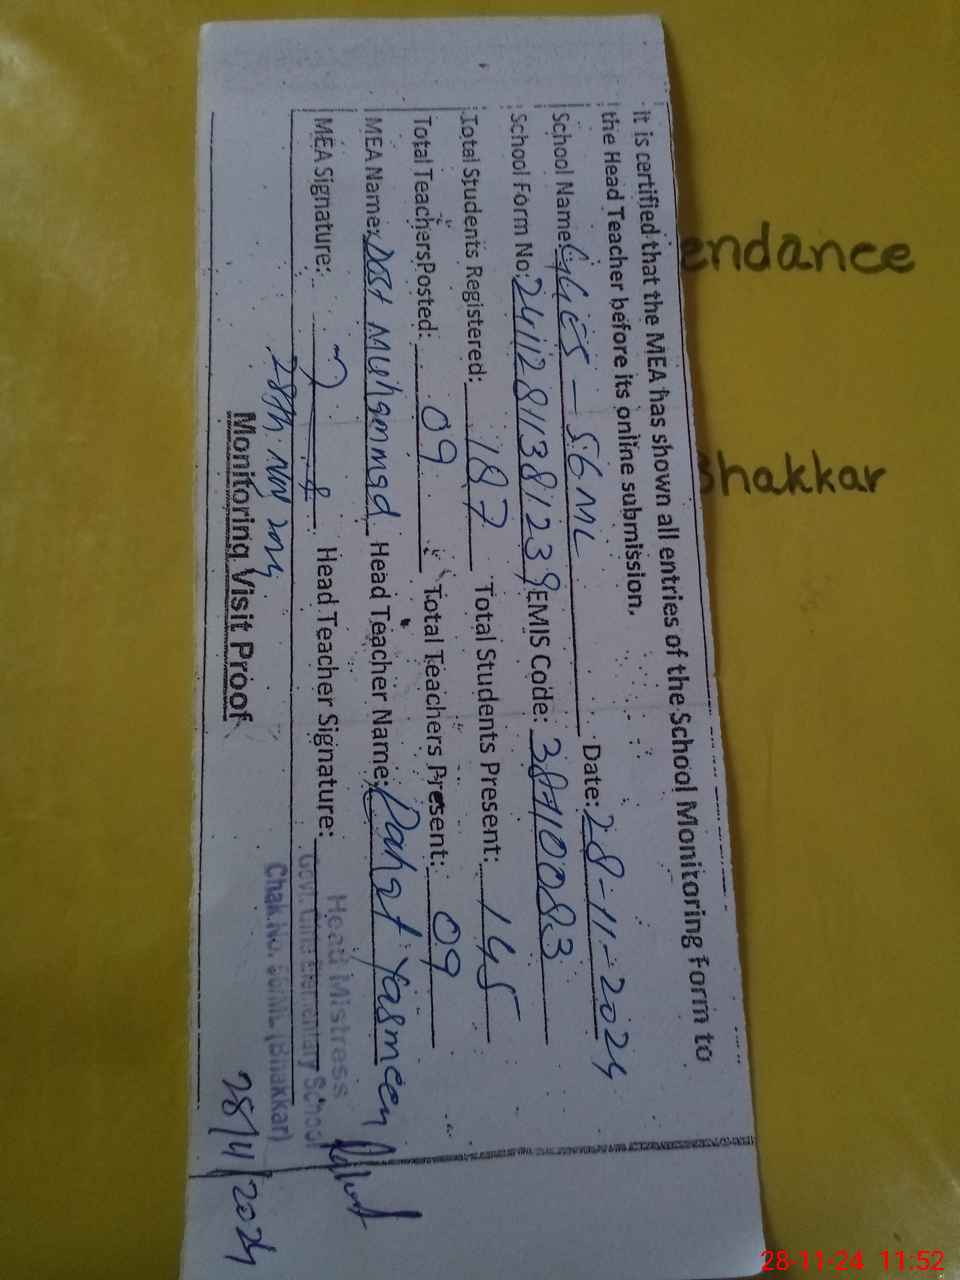 It is certified that the MEA has shown all entries of the School Monitoring Form to
the Head Teacher before its online submission.
School Name: GGES - 56 ML Date: 28-11-2024
School Form No: 24112811381239 EMIS Code: 38410083
Total Students Registered: 187 Total Students Present: 145
Total Teachers Posted: 09 Total Teachers Present: 09
MEA Name: Dost Muhammad Head Teacher Name: Rahat Yasmeen
MEA Signature: Head Teacher Signature:
28th Nov 2024
Head Mistress
Govt. Girls Elementary School
Chak No. 56/ML (Bhakkar)
28/11/2024
Monitoring Visit Proof
endance
hakkar
28-11-24 11:52